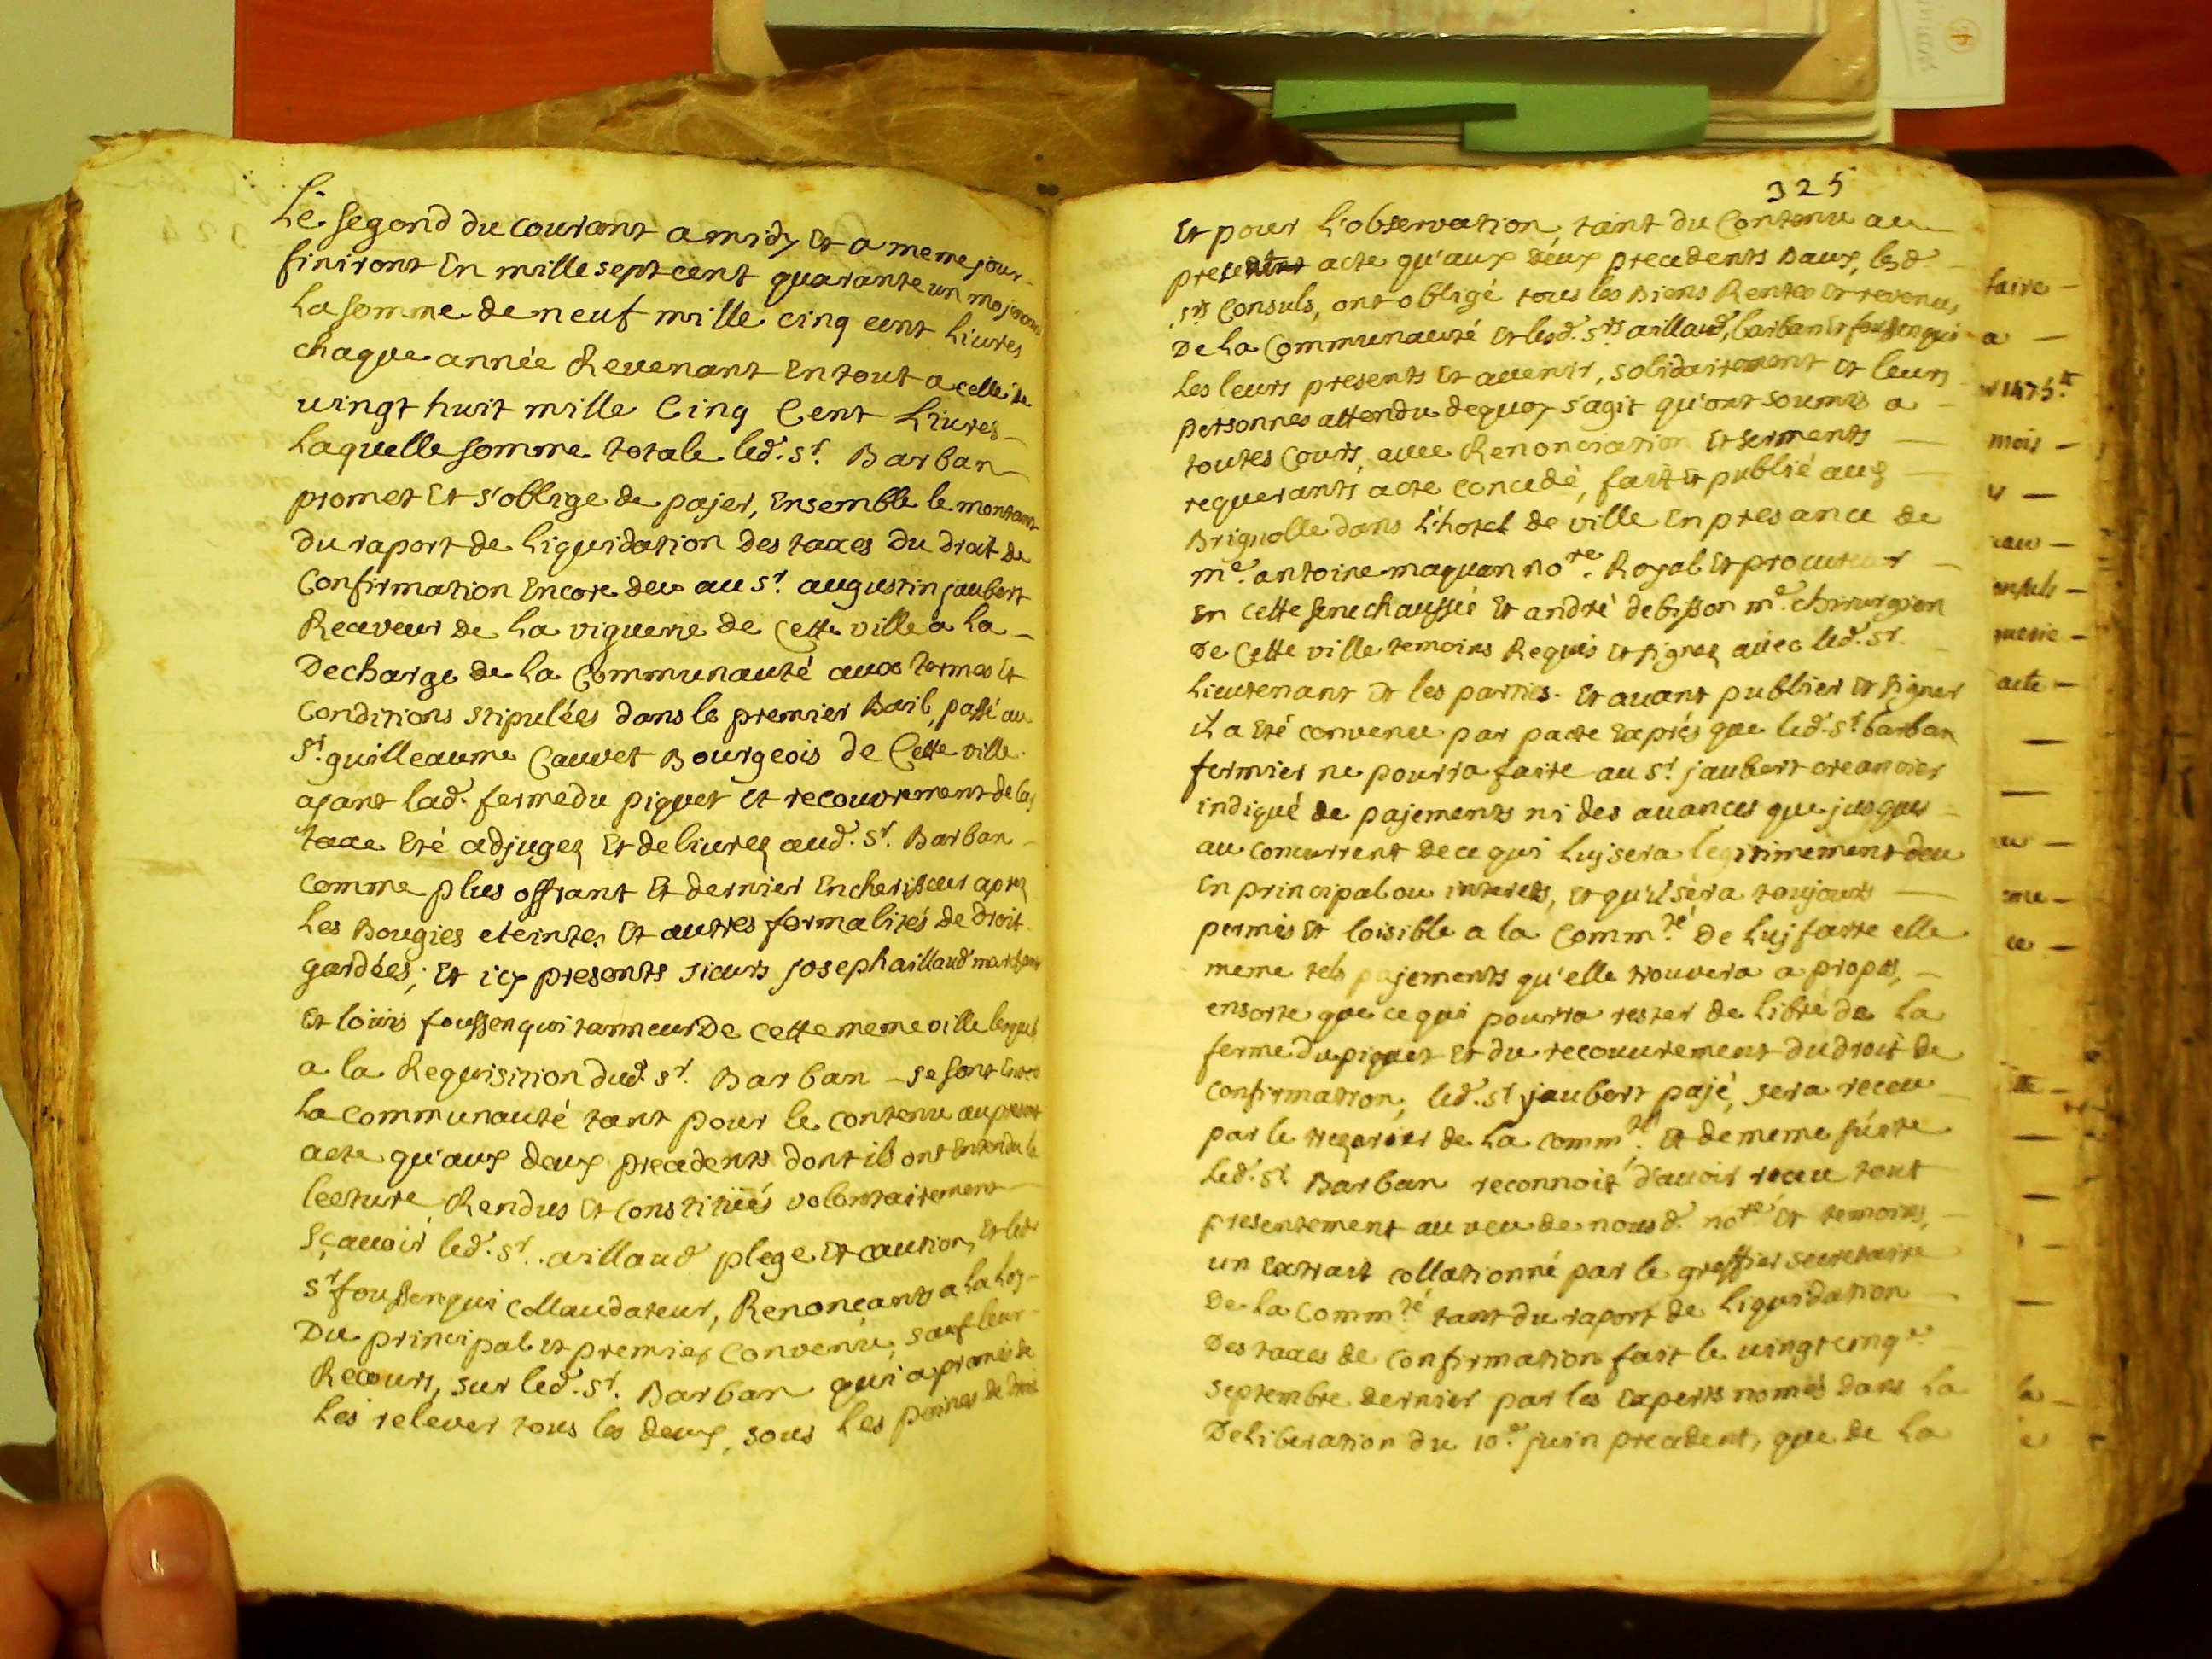 Le segond du courant a midy Et a meme jour
finiront En mille sept cent quarante un mojenant
La somme de neuf mille cinq cent Livres
chaque année Revenant En tout a celle de
vingt huit mille Cinq Cent Livres
Laquelle somme totale led. Sr. Barban
promet Et s'oblige de pajer, Ensemble le montant
du raport de liquidation des taxes du droit de
Confirmation Encore deu au Sr. augustin jaubert
Receveur de la viguerie de Cette ville a la
Decharge de la Communauté aux termes Et
Conditions stipulées dans le premier Bail, passé au
Sr. guilleaume Cauvet Bourgeois de Cette ville
ajant lad. ferme du piquet Et recouvrement de la
taxe Eté adjugez Et delivrez aud. Sr. Barban
Comme plus offrant Et dernier Encherisseur aprez
Les Bougies eteintes Et autres formalités de droit
gardées; Et icy presents sieurs joseph aillaud marchand
Et louis foussenqui tanneur De cette meme ville lesquels
a la Requisition dud. Sr. Barban - se sont
La communauté tant pour le contenu au present
acte qu'aux deux precedents dont ils ont Entendu le
lecture Rendus Et Constitués volontairement
Sçavoir led. Sr. aillaud plege Et caution, Et led.
Sr foussenqui collaudateur, Renonçants a la loy
Du principal Et premier convenu, sauf leur
Recours, sur led. Sr. Barban qui a promis de
Les relever tous les deux, sous Les peines de droit
325
Et pour L'observation, tant du Contenu au
present acte qu'aux deux precedents Baux, lesd
srs Consuls, ont obligé tous les Biens Rentes Et revenus
De la Communauté Et lesd. Srs aillaud, barban Et foussenqui
Les leurs presents Et avenir, solidairement Et leurs
personnes attendu dequoy s'agit qu'ont soumis a
toutes Cours, avec Renonciation Et serments
requerants acte concedé, fait Et publié aud
Brignolle dans L'hotel de ville En presance de
me. antoine maquan nore. Royal Et procureur
En cette senechaussée Et andré debisson me. chirurgien
De Cette ville temoins Requis Et signez avec led. Sr.
Lieutenant Et les parties. Et avant publier Et signer
il a Eté convenu par pacte Exprés que led. Sr. barban
fermier ne pourra faire au Sr. jaubert creancier
indiqué de pajements ni des avances que jusques
au concurrent de ce qui luj sera legitimement deu
En principal ou interets, Et qu'il sera toujours
permis Et loisible a la Commté. De luj faire elle
meme tels pajements qu'elle trouvera a propos,
ensorte que ce qui pourra rester de libre de la
ferme du piquet Et du recouvrement du droit de
confirmation, led. Sr jaubert pajé, sera receu
par le treçorier de la commté. Et de meme suitte
Led. Sr. Barban reconnoit d'avoir receu tout
presentement au veu de nousd. nore. Et temoins,
un Extrait collationné par le greffier secretaire
De la Commté tant du raport de liquidation
Des taxes de confirmation fait le vingt cinqe
septembre dernier par les Experts només dans la
Deliberation du 10e. juin precedent, que de la
faire
a
1475
mois
acte